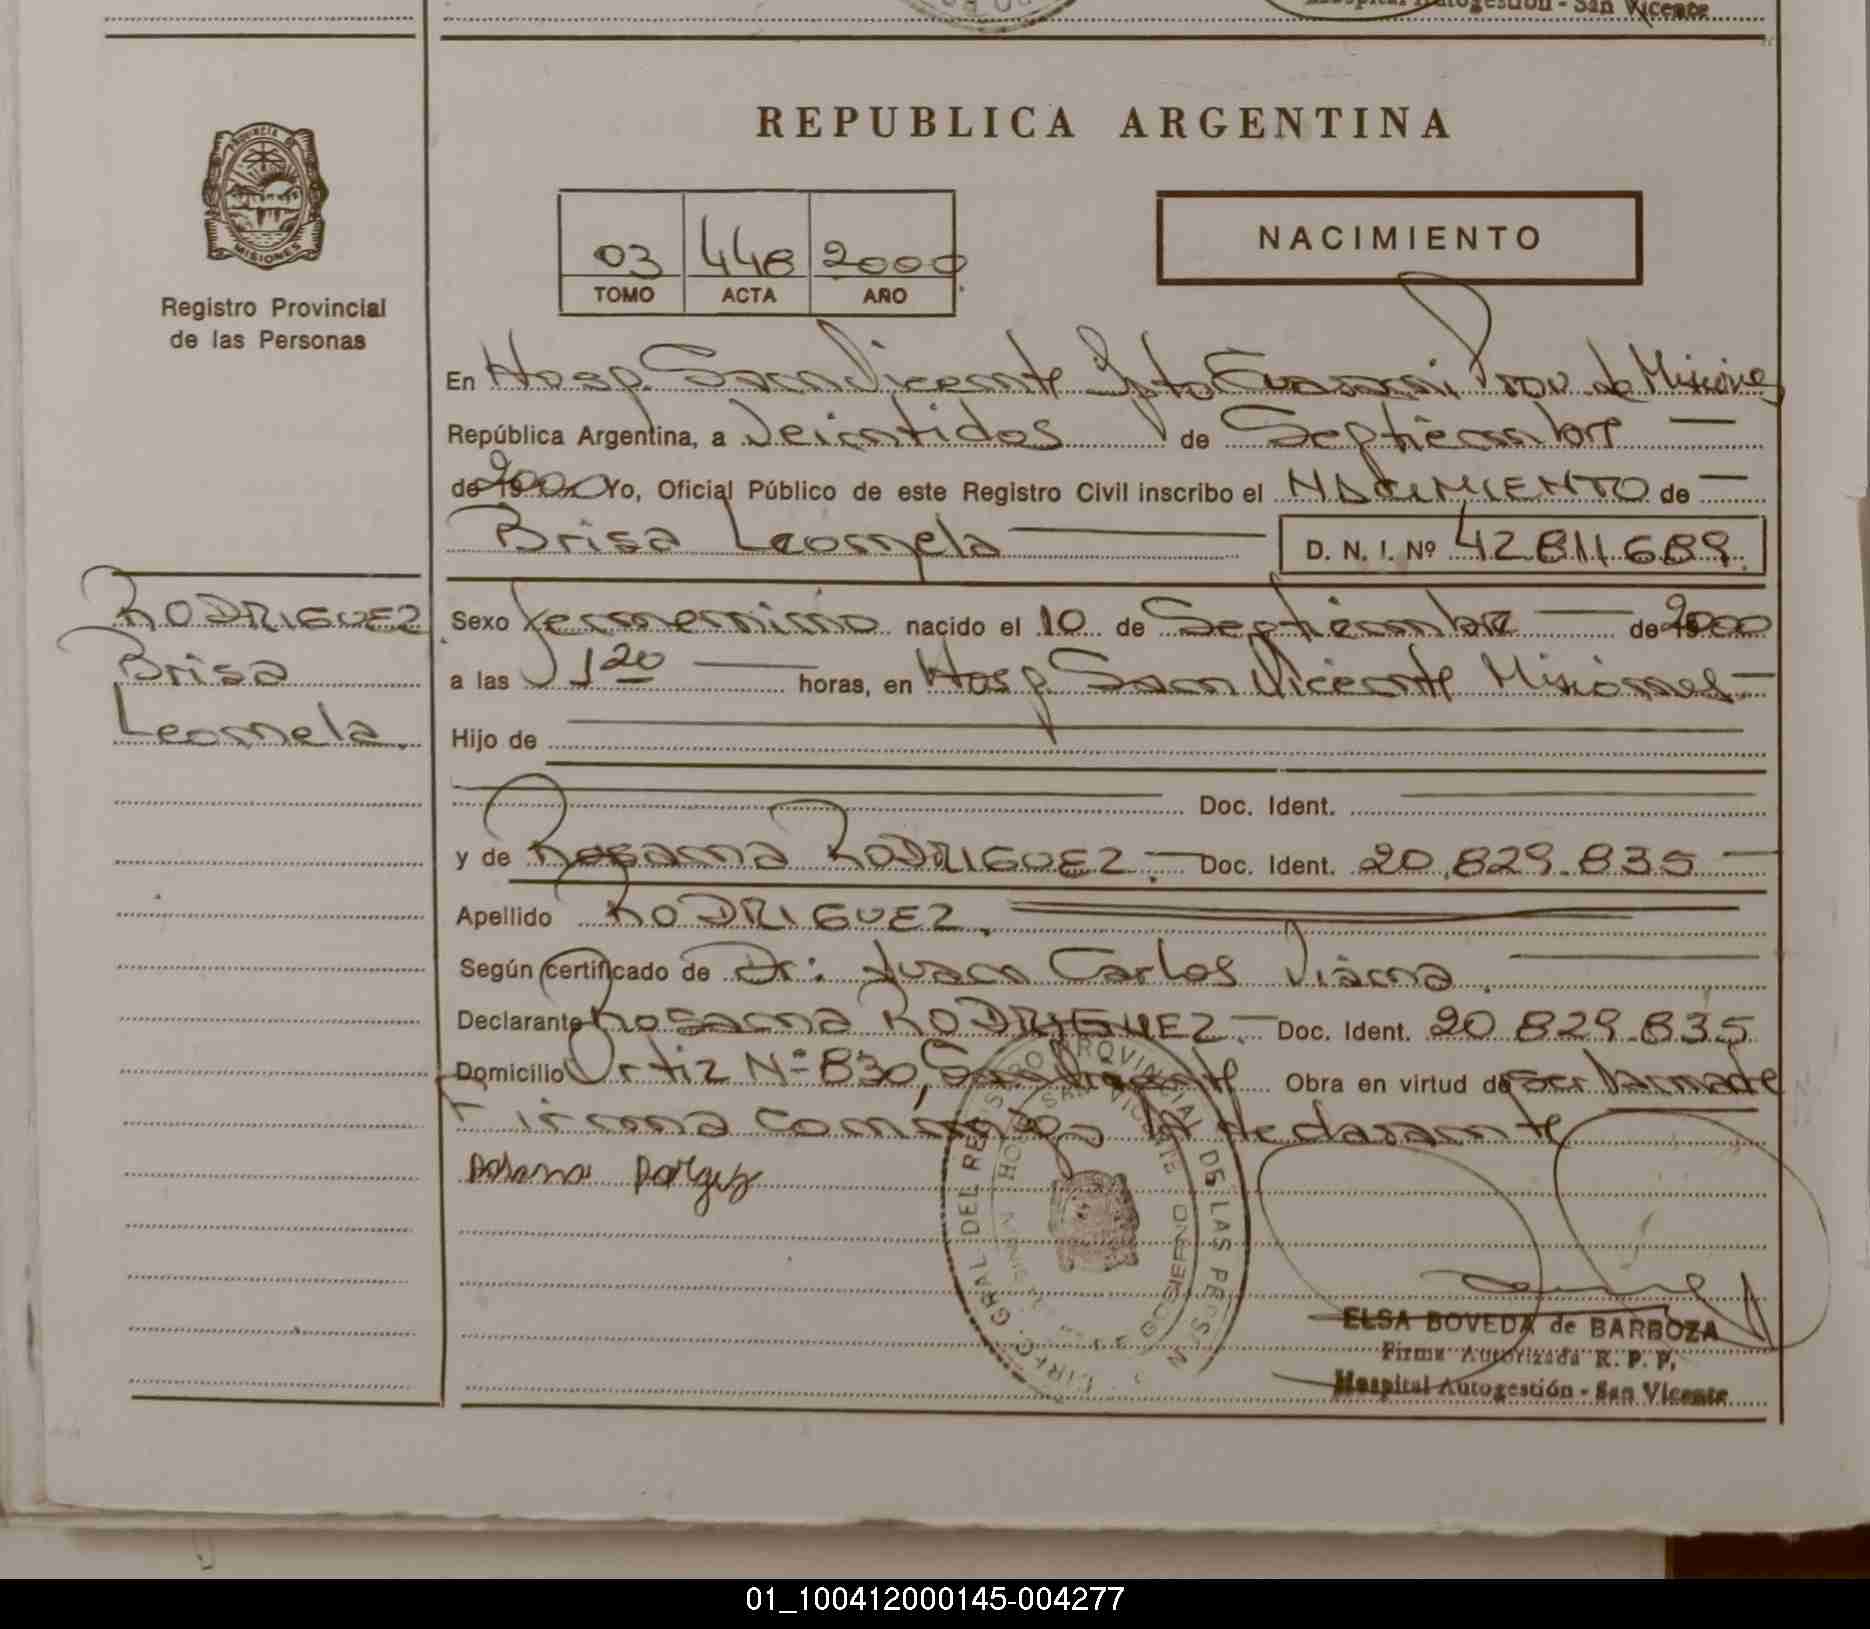 Hospital Autogestión - San Vicente
REPUBLICA ARGENTINA
PROVINCIA DE
MISIONES
Registro Provincial
de las Personas
03 448 2000
TOMO ACTA AÑO
NACIMIENTO
En Hosp. San Vicente Dpto Guarani Prov. de Misiones
República Argentina, a Veintidos de Septiembre
de 2000 Yo, Oficial Público de este Registro Civil inscribo el NACIMIENTO de
Brisa Leonela D. N. I. Nº 42811689.
RODRIGUEZ
Brisa
Leonela.
Sexo femenino nacido el 10 de Septiembre de 2000
a las 1 20 horas, en Hosp. San Vicente Misiones
Hijo de
Doc. Ident.
y de Rosana RODRIGUEZ. Doc. Ident. 20.829.835
Apellido RODRIGUEZ.
Según certificado de Dr: Juan Carlos Viana.
Declarante Rosana RODRIGUEZ. Doc. Ident. 20 829.835
Domicilio Ortiz Nº 830, San Vicente Obra en virtud de ser la madre
Firma conmigo la declarante
DIREC. GRAL. DEL REGISTRO PROVINCIAL DE LAS PERSONAS
SAN VICENTE
ELSA BOVEDA de BARBOZA
Firma Autorizada R. P. P.
Hospital Autogestión - San Vicente
01_100412000145-004277